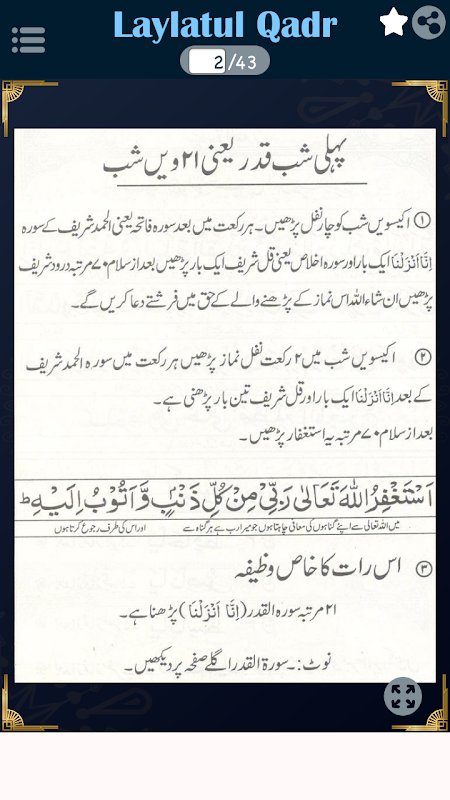 Laylatul Qadr
2/43
پہلی شب قدر یعنی ۲۱ ویں شب
① اکیسویں شب کو چار نفل پڑھیں۔ ہر رکعت میں بعد سورہ فاتحہ یعنی الحمد شریف کے سورہ
اِنَّا اَنْزَلْنَا ایک بار اور سورہ اخلاص یعنی قل شریف ایک بار پڑھیں بعد از سلام ۷۰ مرتبہ درود شریف
پڑھیں ان شاء اللہ اس نماز کے پڑھنے والے کے حق میں فرشتے دعا کریں گے۔
② اکیسویں شب میں ۲ رکعت نفل نماز پڑھیں ہر رکعت میں سورہ الحمد شریف
کے بعد اِنَّا اَنْزَلْنَا ایک بار اور قل شریف تین بار پڑھنی ہے۔
بعد از سلام ۷۰ مرتبہ یہ استغفار پڑھیں۔
اَسْتَغْفِرُ اللّٰهَ تَعَالٰى رَبِّيْ مِنْ كُلِّ ذَنْبٍ وَّاَتُوْبُ اِلَيْهِ ؕ
میں اللہ تعالیٰ سے اپنے گناہوں کی معافی چاہتا ہوں جو میرا رب ہے ہر گناہ سے اور اس کی طرف رجوع کرتا ہوں
③ اس رات کا خاص وظیفہ
۲۱ مرتبہ سورہ القدر (اِنَّا اَنْزَلْنَا) پڑھنا ہے۔
نوٹ:۔ سورۃ القدر اگلے صفحہ پر دیکھیں۔